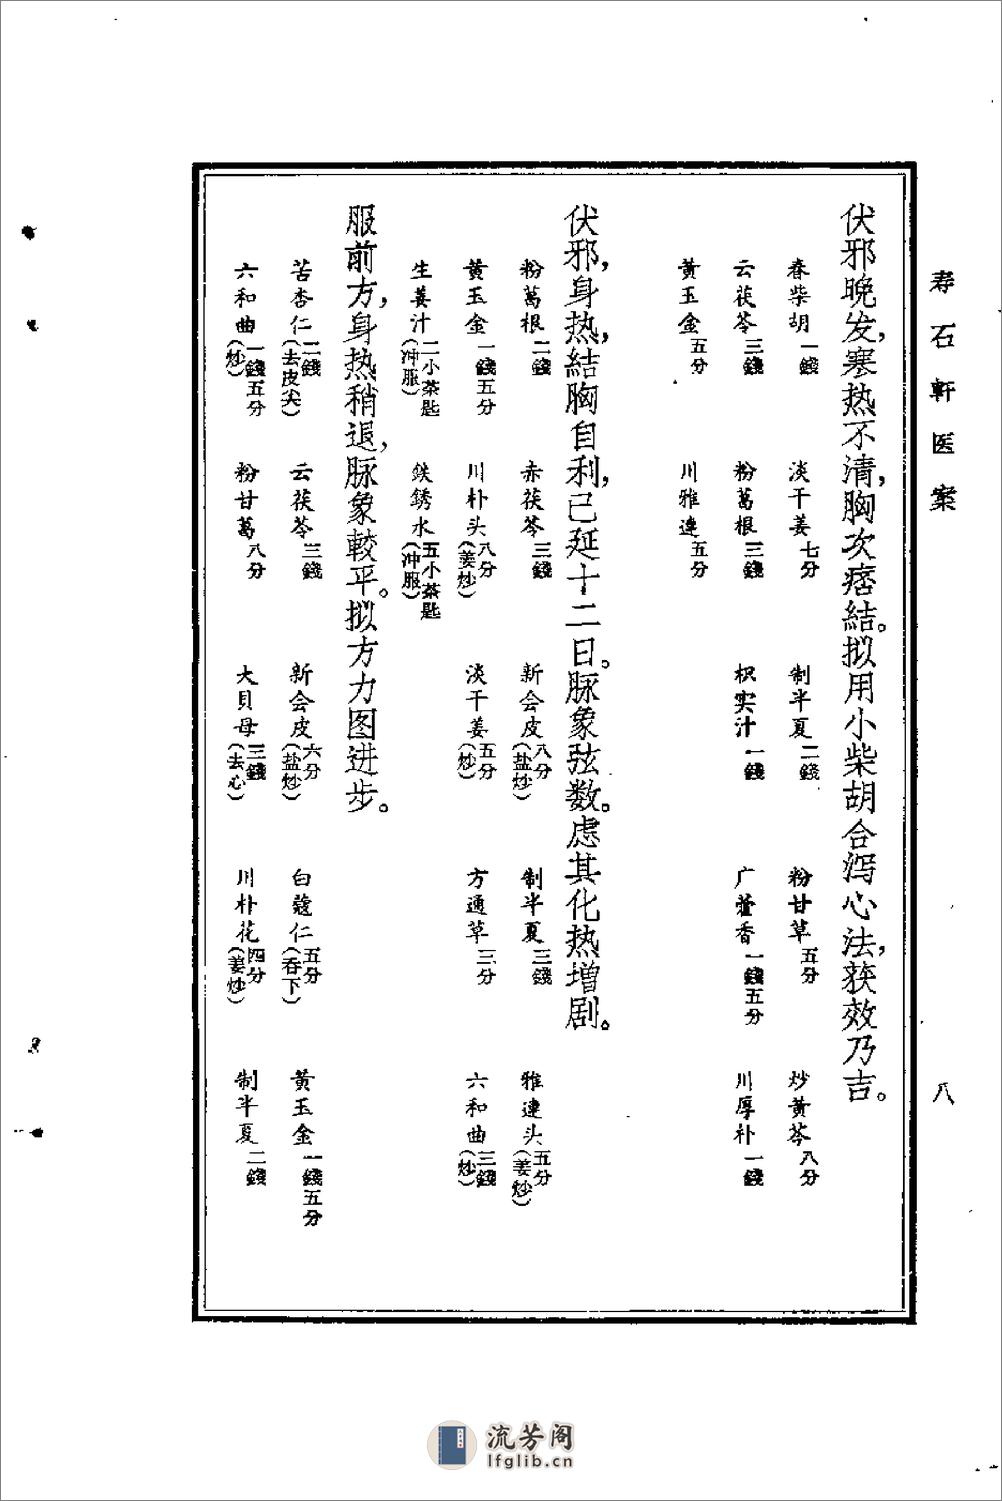 寿石軒医案
八
伏邪晚发，寒热不清，胸次痞結。拟用小柴胡合泻心法，获效乃吉。
春柴胡一錢 淡干姜七分 制半夏二錢 粉甘草五分 炒黄芩八分
云茯苓三錢 粉葛根三錢 枳实汁一錢 广藿香一錢五分 川厚朴一錢
黄玉金五分 川雅連五分
伏邪，身热，結胸自利，已延十二日。脉象弦数。虑其化热增剧。
粉葛根二錢 赤茯苓三錢 新会皮八分（盐炒） 制半夏三錢 雅連头五分（姜炒）
黄玉金一錢五分 川朴头八分（姜炒） 淡干姜五分（炒） 方通草三分 六和曲三錢（炒）
生姜汁二小茶匙（冲服） 鉄銹水五小茶匙（冲服）
服前方，身热稍退，脉象較平。拟方力图进步。
苦杏仁二錢（去皮尖） 云茯苓三錢 新会皮六分（盐炒） 白蔻仁五分（吞下） 黄玉金一錢五分
六和曲一錢五分（炒） 粉甘葛八分 大貝母三錢（去心） 川朴花四分（姜炒） 制半夏二錢
流芳阁
lfglib.cn